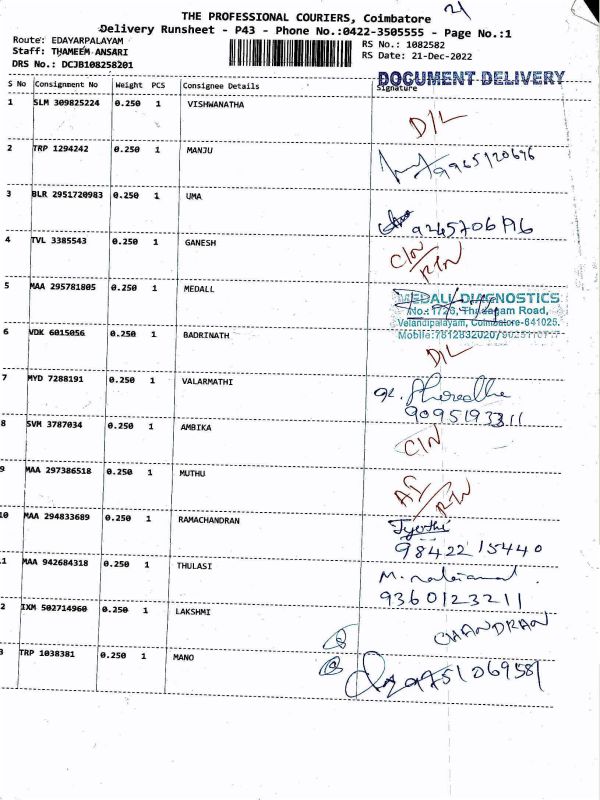 21
THE PROFESSIONAL COURIERS, Coimbatore
Delivery Runsheet - P43 - Phone No.:0422-3505555 - Page No.:1
Route: EDAYARPALAYAM
RS No.: 1082582
Staff: THAMEEM ANSARI
RS Date: 21-Dec-2022
DRS No.: DCJB108258201
DOCUMENT DELIVERY
S No Consignment No Weight PCS Consignee Details Signature
1 SLM 309825224 0.250 1 VISHWANATHA
D/L
2 TRP 1294242 0.250 1 MANJU
9965120696
3 BLR 2951720983 0.250 1 UMA
9245706196
4 TVL 3385543 0.250 1 GANESH
C/N
RTN
5 MAA 295781805 0.250 1 MEDALL
MEDALL DIAGNOSTICS
No.: 1726, Thadagam Road,
Velandipalayam, Coimbatore-641025.
Mobile:7812832020/
6 VDK 6015056 0.250 1 BADRINATH
D/L
7 MYD 7288191 0.250 1 VALARMATHI
9095193311
8 SVM 3787034 0.250 1 AMBIKA
C/N
9 MAA 297386518 0.250 1 MUTHU
RTN
10 MAA 294833689 0.250 1 RAMACHANDRAN
Jyothi
98422 15440
.1 MAA 942684318 0.250 1 THULASI
9360123211
2 IXM 502714960 0.250 1 LAKSHMI
CHANDRAN
3 TRP 1038381 0.250 1 MANO
9751069581